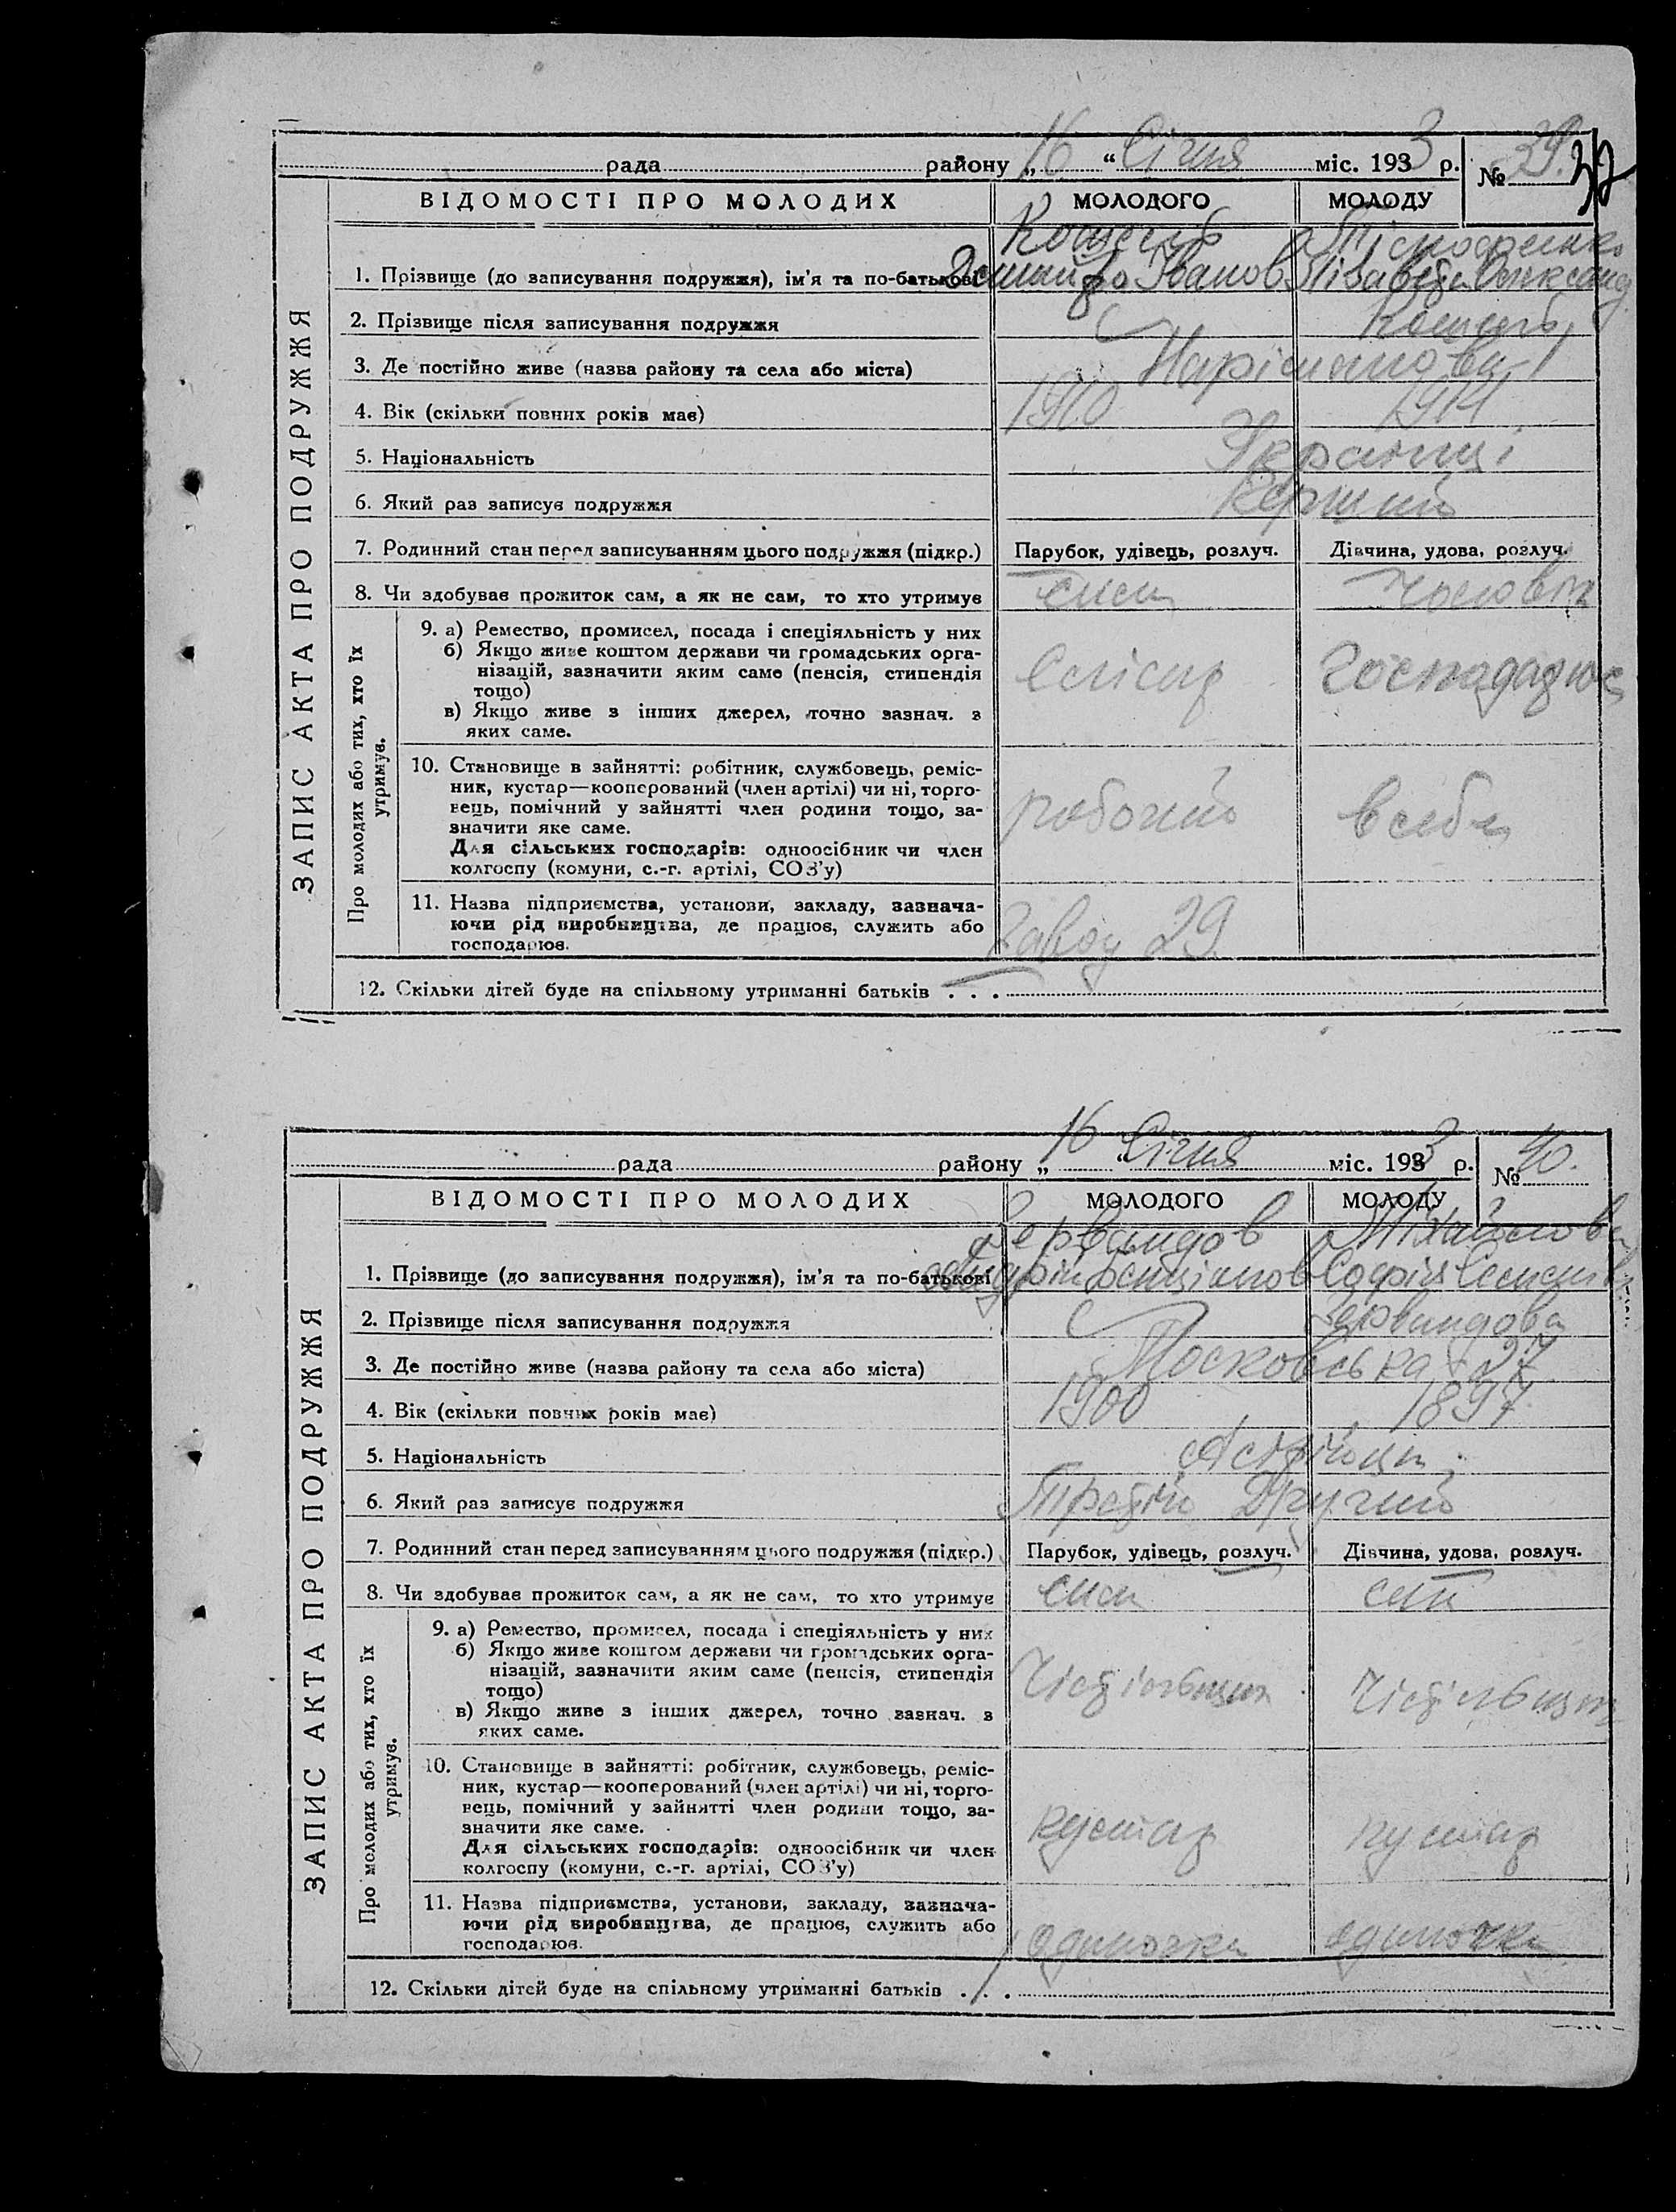 рада района „ 16 “ Січня міс. 1933 р. № 39. 32
ВІДОМОСТІ ПРО МОЛОДИХ МОЛОДОГО МОЛОДУ
ЗАПИС АКТА ПРО ПОДРУЖЖЯ
1. Прізвище (до записування подружжя), ім'я та по-батькові Іванов Лізавета Олександ
2. Прізвище після записування подружжя
3. Де постійно живе (назва району та села або міста)
4. Вік (скільки повних років має) 1910 1914
5. Національність Українці
6. Який раз записує подружжя Перший
7. Родинний стан перед записуванням цього подружжя (підкр.) Парубок, удівець, розлуч. Дівчина, удова, розлуч.
8. Чи здобуває прожиток сам, а як не сам, то хто утримує сам чоловік
Про молодих або тих, хто їх утримує.
9. а) Ремество, промисел, посада і спеціяльність у них
б) Якщо живе коштом держави чи громадських орга-
нізацій, зазначити яким саме (пенсія, стипендія
тощо)
в) Якщо живе з інших джерел, точно зазнач. з
яких саме.
Слісар Господарює
10. Становище в зайнятті: робітник, службовець, реміс-
ник, кустар—кооперований (член артілі) чи ні, торго-
вець, помічний у зайнятті член родини тощо, за-
значити яке саме.
Для сільських господарів: одноосібник чи член
колгоспу (комуни, с.-г. артілі, СОЗ'у)
робочий в себе
11. Назва підприємства, установи, закладу, зазнача-
ючи рід виробництва, де працює, служить або
господарює.
Завод 29
12. Скільки дітей буде на спільному утриманні батьків . . .
рада району „ 16 “ Січня міс. 1933 р. № 40.
ВІДОМОСТІ ПРО МОЛОДИХ МОЛОДОГО МОЛОДУ
ЗАПИС АКТА ПРО ПОДРУЖЖЯ
Міхайлова
1. Прізвище (до записування подружжя), ім'я та по-батькові Софія
2. Прізвище після записування подружжя Зервандова
3. Де постійно живе (назва району та села або міста) Московська 27
4. Вік (скільки повних років має) 1900 1897
5. Національність
6. Який раз записує подружжя Третій Другий
7. Родинний стан перед записуванням цього подружжя (підкр.) Парубок, удівець, розлуч. Дівчина, удова, розлуч.
8. Чи здобуває прожиток сам, а як не сам, то хто утримує сам сам
Про молодих або тих, хто їх утримує.
9. а) Ремество, промисел, посада і спеціяльність у них
б) Якщо живе коштом держави чи громадських орга-
нізацій, зазначити яким саме (пенсія, стипендія
тощо)
в) Якщо живе з інших джерел, точно зазнач. з
яких саме.
Чістільщик Чістільщик
10. Становище в зайнятті: робітник, службовець, реміс-
ник, кустар—кооперований (член артілі) чи ні, торго-
вець, помічний у зайнятті член родини тощо, за-
значити яке саме.
Для сільських господарів: одноосібник чи член
колгоспу (комуни, с.-г. артілі, СОЗ'у)
кустар кустар
11. Назва підприємства, установи, закладу, зазнача-
ючи рід виробництва, де працює, служить або
господарює.
одиночка одиночка
12. Скільки дітей буде на спільному утриманні батьків . . .